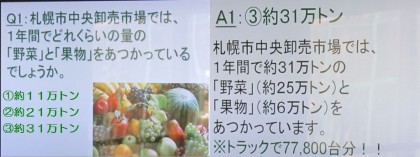 Q1:札幌市中央卸売市場では、
1年間でどれくらいの量の
「野菜」と「果物」をあつかっている
でしょうか。
①約11万トン
②約21万トン
③約31万トン
A1:③約31万トン
札幌市中央卸売市場では、
1年間で約31万トンの
「野菜」(約25万トン)と
「果物」(約6万トン)を
あつかっています。
※トラックで77,800台分!!